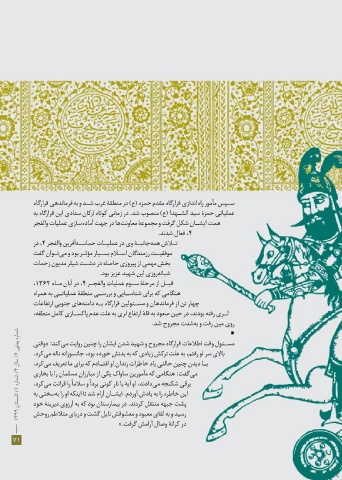 سپس مأمور راه‌اندازی قرارگاه مقدم حمزه (ع) در منطقهٔ غرب شد و به فرماندهی قرارگاه
عملیاتی حمزهٔ سید الشهدا (ع) منصوب شد. در زمانی کوتاه ارکان ستادی این قرارگاه به
همت ایشان شکل گرفت و مجموعهٔ معاونت‌ها در جهت آماده‌سازی عملیات والفجر
۴، فعال شدند.
تلاش همه‌جانبهٔ وی در عملیات حماسه‌آفرین والفجر ۴، در
موفقیت رزمندگان اسلام بسیار مؤثر بود و می‌توان گفت
بخش مهمی از پیروزی حاصله در دشت شیلر مدیون زحمات
شبانه‌روزی این شهید عزیز بود.
قبل از مرحلهٔ سوم عملیات والفجر ۴، در آبان ماه ۱۳۶۲،
هنگامی که برای شناسایی و بررسی منطقهٔ عملیاتی به همراه
چهار تن از فرماندهان و مسئولین قرارگاه به دامنه‌های جنوبی ارتفاعات
لری رفته بودند، در حین صعود به قلهٔ ارتفاع لری به علت عدم پاکسازی کامل منطقه،
روی مین رفت و به‌شدت مجروح شد.
مسئول وقت اطلاعات قرارگاه مجروح و شهید شدن ایشان را چنین روایت می‌کند: «وقتی
بالای سر او رفتم، به علت ترکش زیادی که به بدنش خورده بود، جانسوزانه ناله می‌کرد.
با دیدن چنین حالتی یاد خاطرات زندان او افتادم که برای ما تعریف می‌کرد.
می‌گفت: هنگامی که مأمورین ساواک یکی از مبارزان مسلمان را با بخاری
برقی شکنجه می‌دادند، او آیهٔ یا نار کونی برداً و سلاماً را قرائت می‌کرد.
این خاطره را به یادش آوردم. ایشان آرام شد تا اینکه او را به‌سختی به
پشت جبهه منتقل کردند. در بیمارستان بود که به آرزوی دیرینهٔ خود
رسید و به لقای معبود و معشوقش نایل گشت و دریای متلاطم روحش
در کرانهٔ وصال آرامش گرفت.»
۷۱